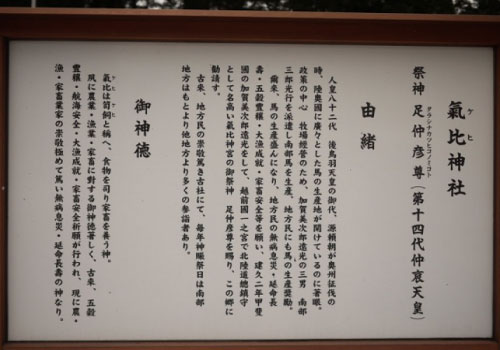 氣比神社
ケヒ
祭神 足仲彦尊（第十四代仲哀天皇）
タラシナカツヒコノーコト
由緒
人皇八十二代 後鳥羽天皇の御代、源頼朝が奥州征伐の
時、陸奥國に廣々とした馬の生産地が開けているのに着眼。
政策の中心 牧場經営のため、加賀美次郎遠光の三男 南部
三郎光行を派遣し南部馬を生産。地方民にも馬の生産奬励。
爾来、馬の生産盛んになり、地方民の無病息災・延命長
壽・五穀豊穰・大漁成就・家畜安全等を願い、建久二年甲斐
國の加賀美次郎遠光をして、越前國一之宮で北陸道總鎮守
として名高い氣比神宮の御祭神 足仲彦尊を賜り、この郷に
勧請す。
古来、地方民の崇敬篤き古社にて、毎年神賑祭日は南部
地方はもとより他地方より多くの参詣者あり。
御神徳
氣比は笥飼と稱へ、食物を司り家畜を養う神。
ケヒ ケヒ
夙に農業・漁業・家畜に對する御神徳著しく、古来、五穀
豊穰・航海安全・大漁成就・家畜安全祈願が行われ、現に農・
漁・家畜業家の崇敬極めて篤い無病息災・延命長壽の神なり。